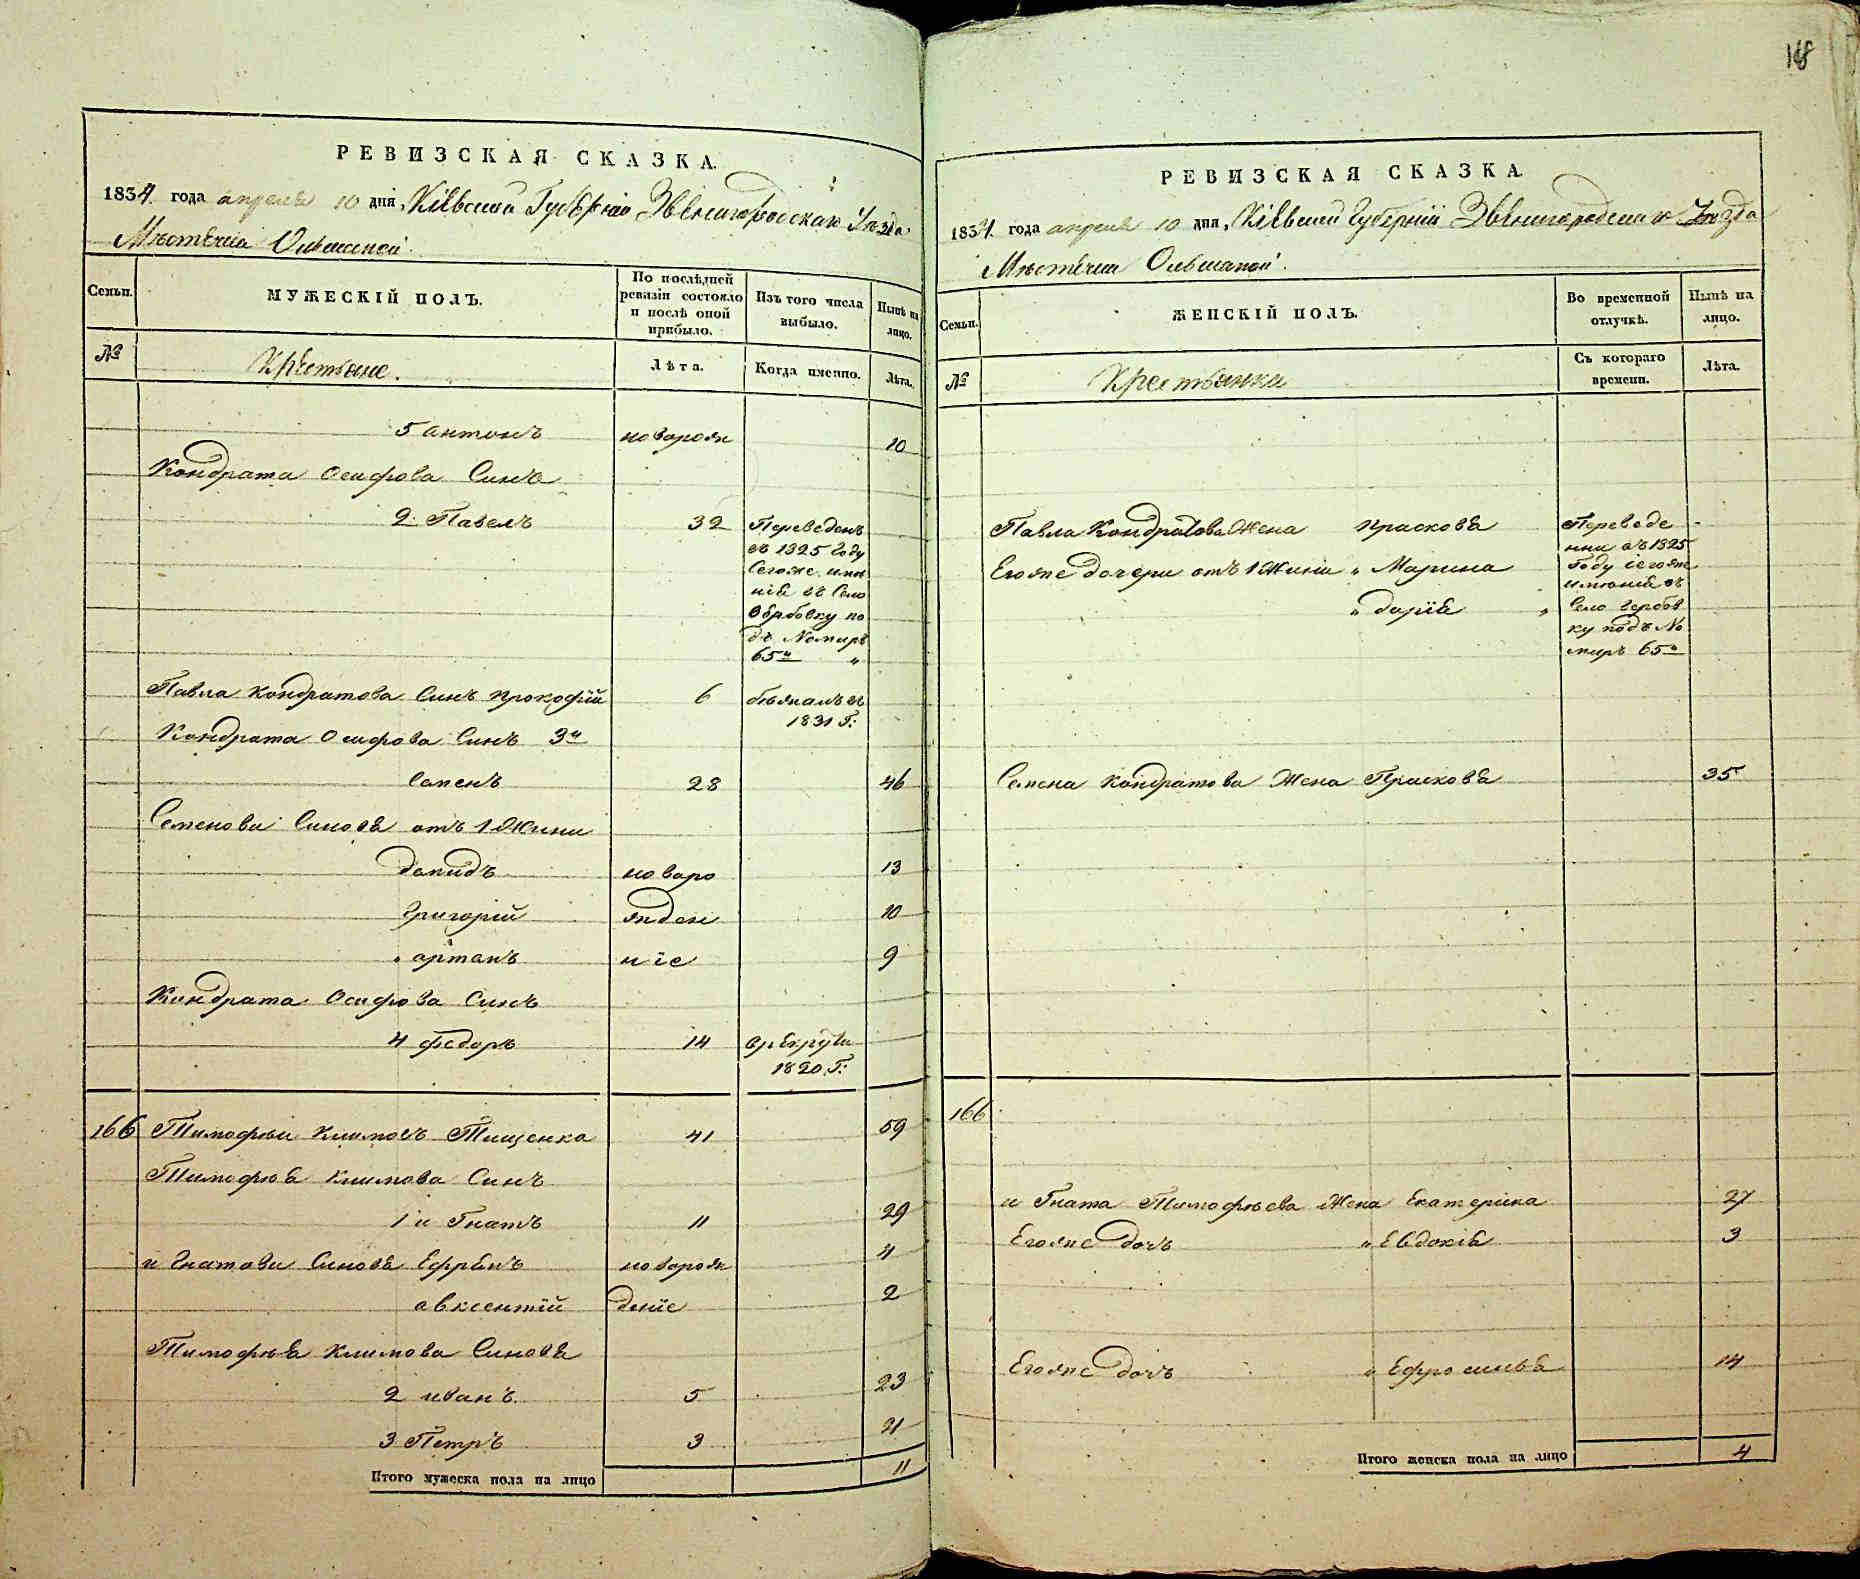 118
РЕВИЗСКАЯ СКАЗКА.
1834 года апреля 10 дня, Кіевской Губерніи Звенигородскаго Уезда
Местечка Ольшаной.
Семьи. МУЖЕСКІЙ ПОЛЪ. По послѣдней ревизіи состояло и послѣ оной прибыло. Изъ того числа выбыло. Нынѣ на лицо.
№ Крестьяне. Лѣта. Когда именно. Лѣта.
5 антонъ новорож 10
Кондрата Осифова Синъ
2 Павелъ 32 Переведенъ
въ 1825 году
Сегоже име
нія въ Село
Вербовку по
дъ Номиръ
65й "
Павла Кондратова Синъ Прокофій 6 бежалъ въ
1831 Г:
Кондрата Осифова Синъ 3й
Семенъ 28 46
Семенови Синовя отъ 1 Жини
Давидъ новоро 13
Григорій жден 10
артамъ ніе 9
Кондрата Осифова Синъ
4 федоръ 14 врекрути
1820 Г:
166 Тимофѣй Климовъ Тищенко 41 59
Тимофѣя Климова Синъ
1 и Гнатъ 11 29
и Гнатови Синовя Ефремъ новорож 4
авксентій деніе 2
Тимофѣя Климова Синовя
2 иванъ 5 23
3 Петръ 3 21
Итого мужеска пола на лицо 11
РЕВИЗСКАЯ СКАЗКА.
1834 года апреля 10 дня, Кіевской Губерніи Звенигородскаго Уезда
Местечка Ольшаной.
Семьи. ЖЕНСКІЙ ПОЛЪ. Во временной отлучкѣ. Нынѣ на лицо.
№ Крестьянки Съ котораго времени. Лѣта.
Павла Кондратова Жена Прасковя Переведе
нни въ 1825
Егоже дочери отъ 1 Жини " Марина Году сегож
именія въ
" Дарія " Село Вербов
ку подъ Но
миръ 65й
Семена Кондратова Жена Прасковя 35
166
и Гната Тимофѣева Жена Екатерина 27
Егоже Дочъ " Евдокія 3
Егоже Дочъ " Ефросинья 14
Итого женска пола на лицо 4